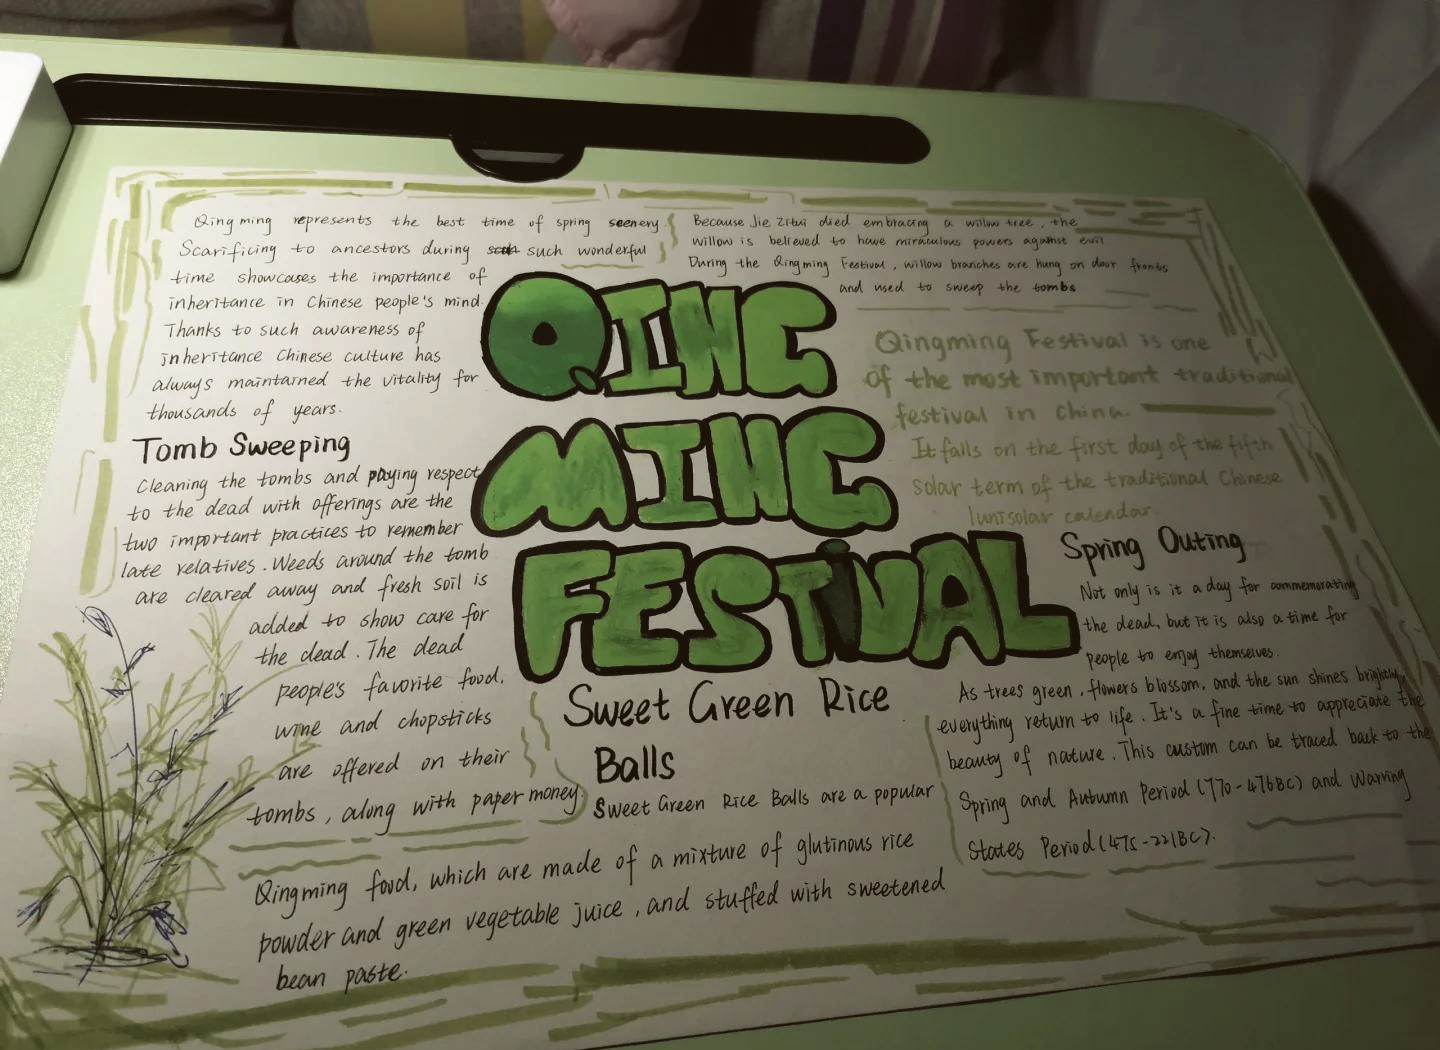 Qingming represents the best time of spring scenery
Scarificing to ancestors during such wonderful
time showcases the importance of
inheritance in Chinese people's mind.
Thanks to such awareness of
inheritance Chinese culture has
always maintained the vitality for
thousands of years.
Tomb Sweeping
Cleaning the tombs and paying respect
to the dead with offerings are the
two important practices to remember
late relatives. Weeds around the tomb
are cleared away and fresh soil is
added to show care for
the dead. The dead
people's favorite food,
wine and chopsticks
are offered on their
tombs, along with paper money.
Because Jie Zitui died embracing a willow tree, the
willow is believed to have miraculous powers against evil
During the Qingming Festival, willow branches are hung on door fronts
and used to sweep the tombs
QING
MING
FESTiVAL
Qingming Festival is one
of the most important traditional
festival in China.
It falls on the first day of the fifth
solar term of the traditional Chinese
lunisolar calendar.
Spring Outing
Not only is it a day for commemorating
the dead, but it is also a time for
people to enjoy themselves.
As trees green, flowers blossom, and the sun shines brightly,
everything return to life. It's a fine time to appreciate the
beauty of nature. This custom can be traced back to the
Spring and Autumn Period (770-476BC) and Warring
States Period (475-221BC).
Sweet Green Rice
Balls
Sweet Green Rice Balls are a popular
Qingming food, which are made of a mixture of glutinous rice
powder and green vegetable juice, and stuffed with sweetened
bean paste.